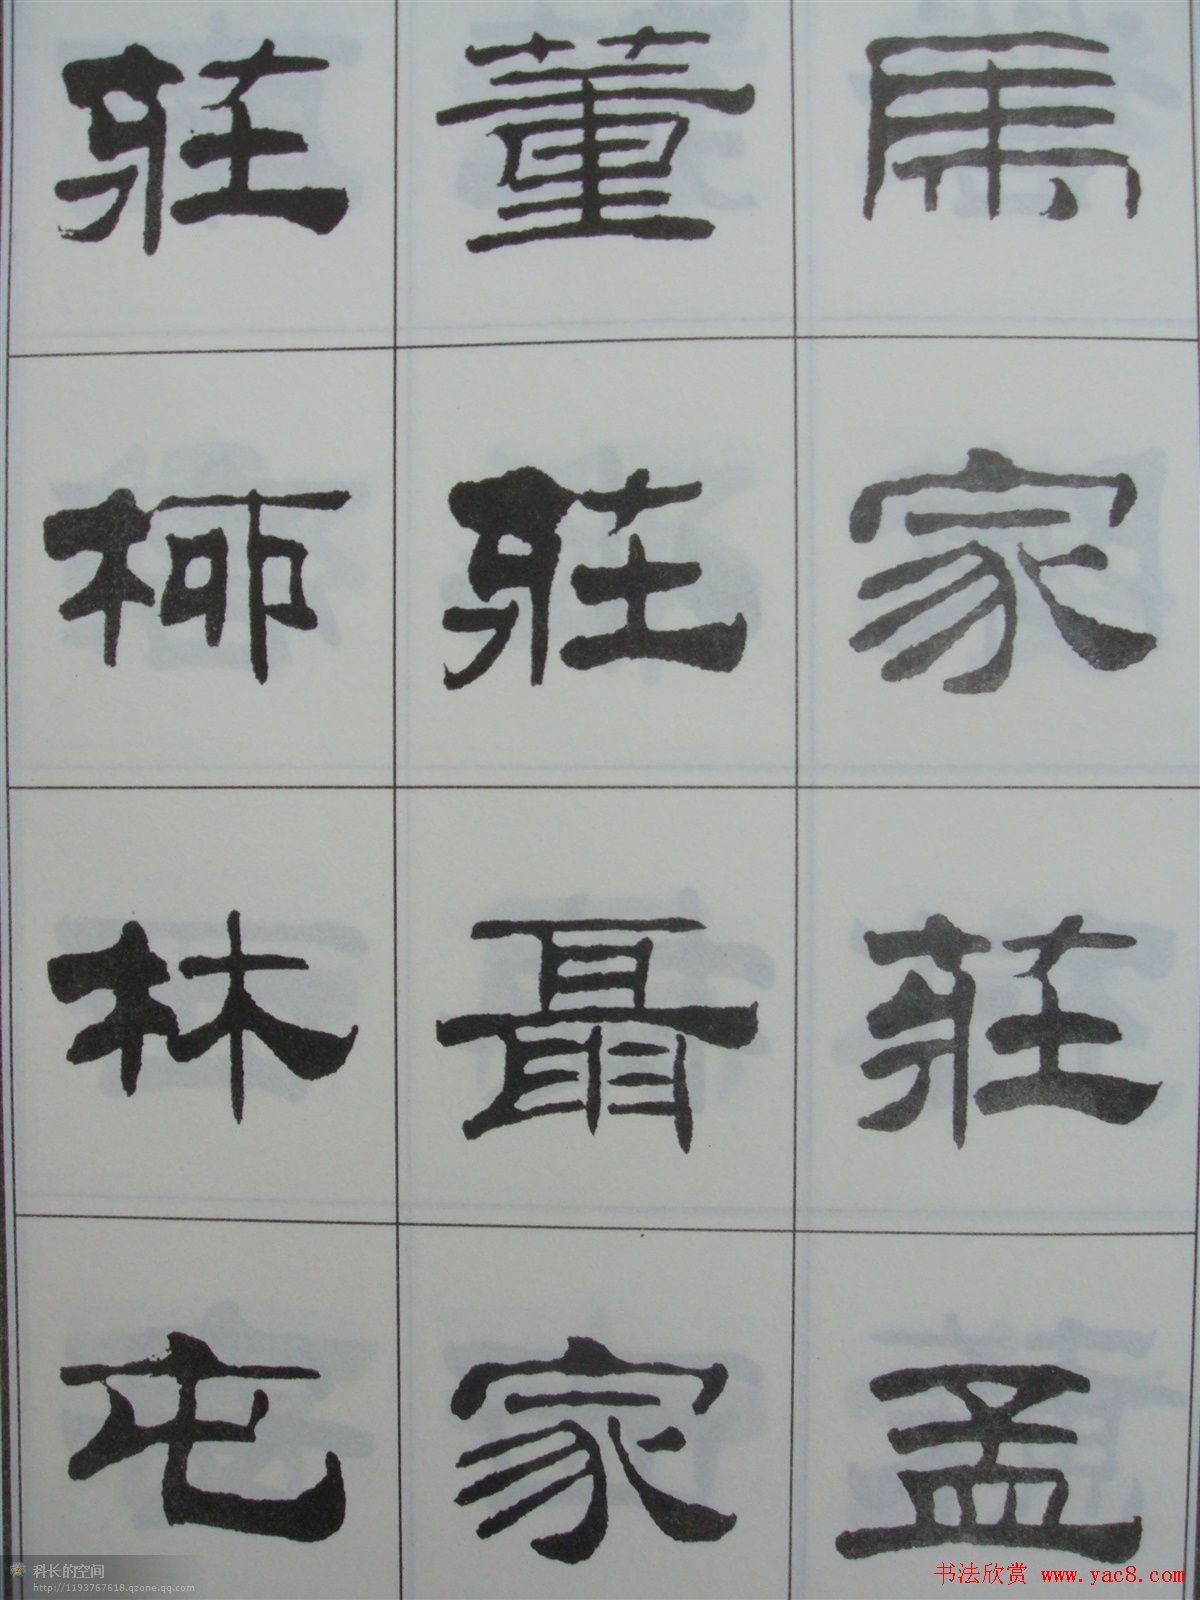 馬家莊孟
董莊聶家
莊柳林屯
科长的空间
http://1193767618.qzone.qq.com
书法欣赏 www.yac8.com